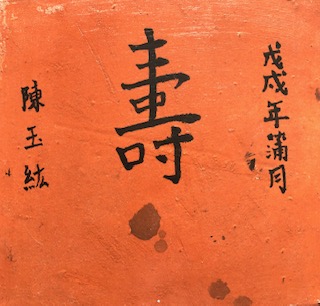 戊戌年蒲月
壽
陳玉紘